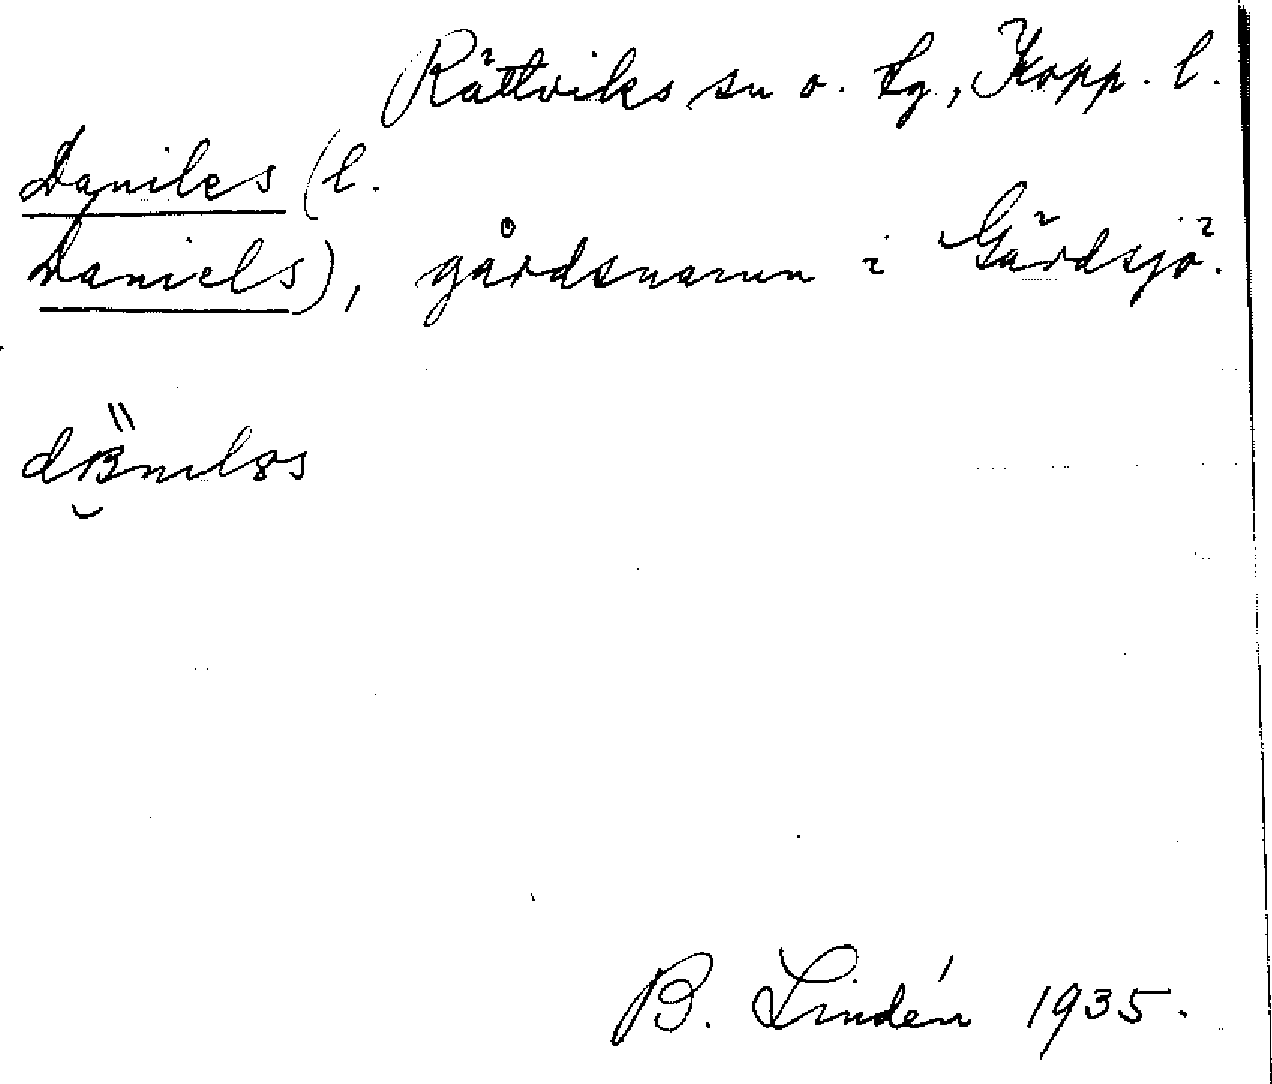 Rättviks sn o. tg, Kopp. l.
Daniles (l.
Daniels), gårdsnamn i Gärdsjö.
B. Lindén 1935.